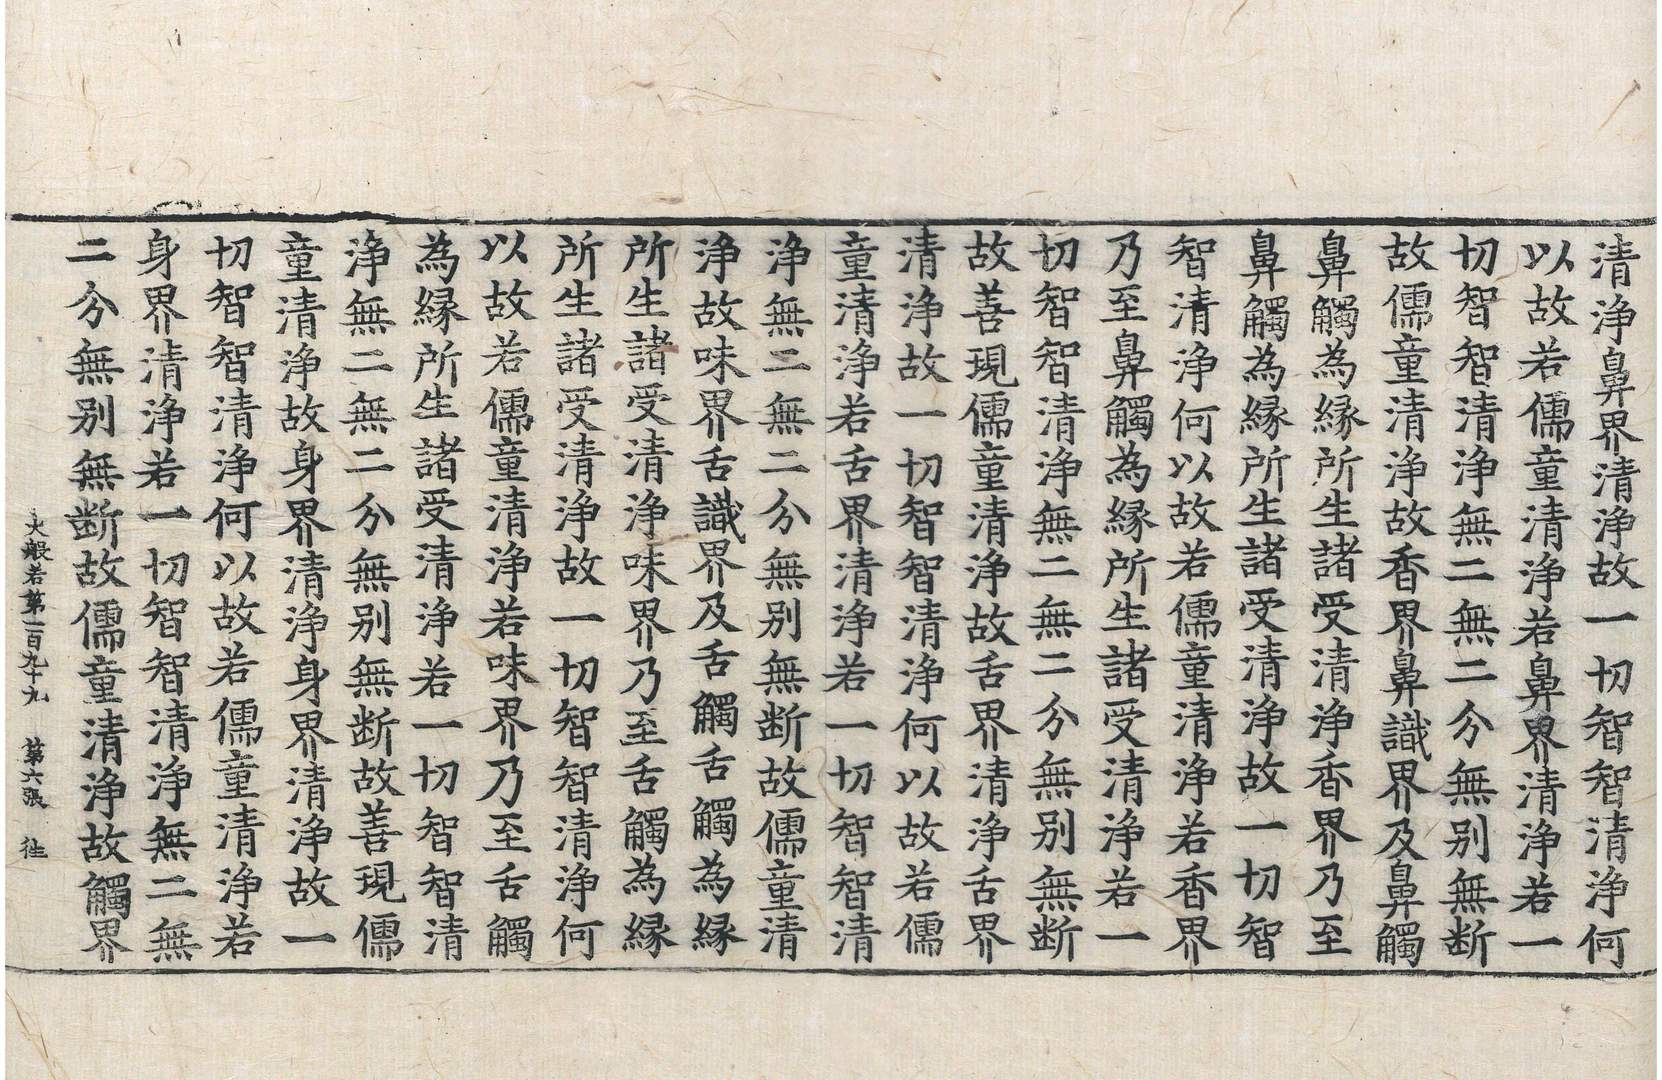 清浄鼻界清浄故一切智智清浄何
以故若儒童清浄若鼻界清浄若一
切智智清浄無二無二分無别無断
故儒童清浄故香界鼻識界及鼻觸
鼻觸為縁所生諸受清浄香界乃至
鼻觸為縁所生諸受清浄故一切智
智清浄何以故若儒童清浄若香界
乃至鼻觸為縁所生諸受清浄若一
切智智清浄無二無二分無别無断
故善現儒童清浄故舌界清浄舌界
清浄故一切智智清浄何以故若儒
童清浄若舌界清浄若一切智智清
浄無二無二分無别無断故儒童清
浄故味界舌識界及舌觸舌觸為縁
所生諸受清浄味界乃至舌觸為縁
所生諸受清浄故一切智智清浄何
以故若儒童清浄若味界乃至舌觸
為縁所生諸受清浄若一切智智清
浄無二無二分無别無断故善現儒
童清浄故身界清浄身界清浄故一
切智智清浄何以故若儒童清浄若
身界清浄若一切智智清浄無二無
二分無别無断故儒童清浄故觸界
大般若第一百九十九 第六張 往